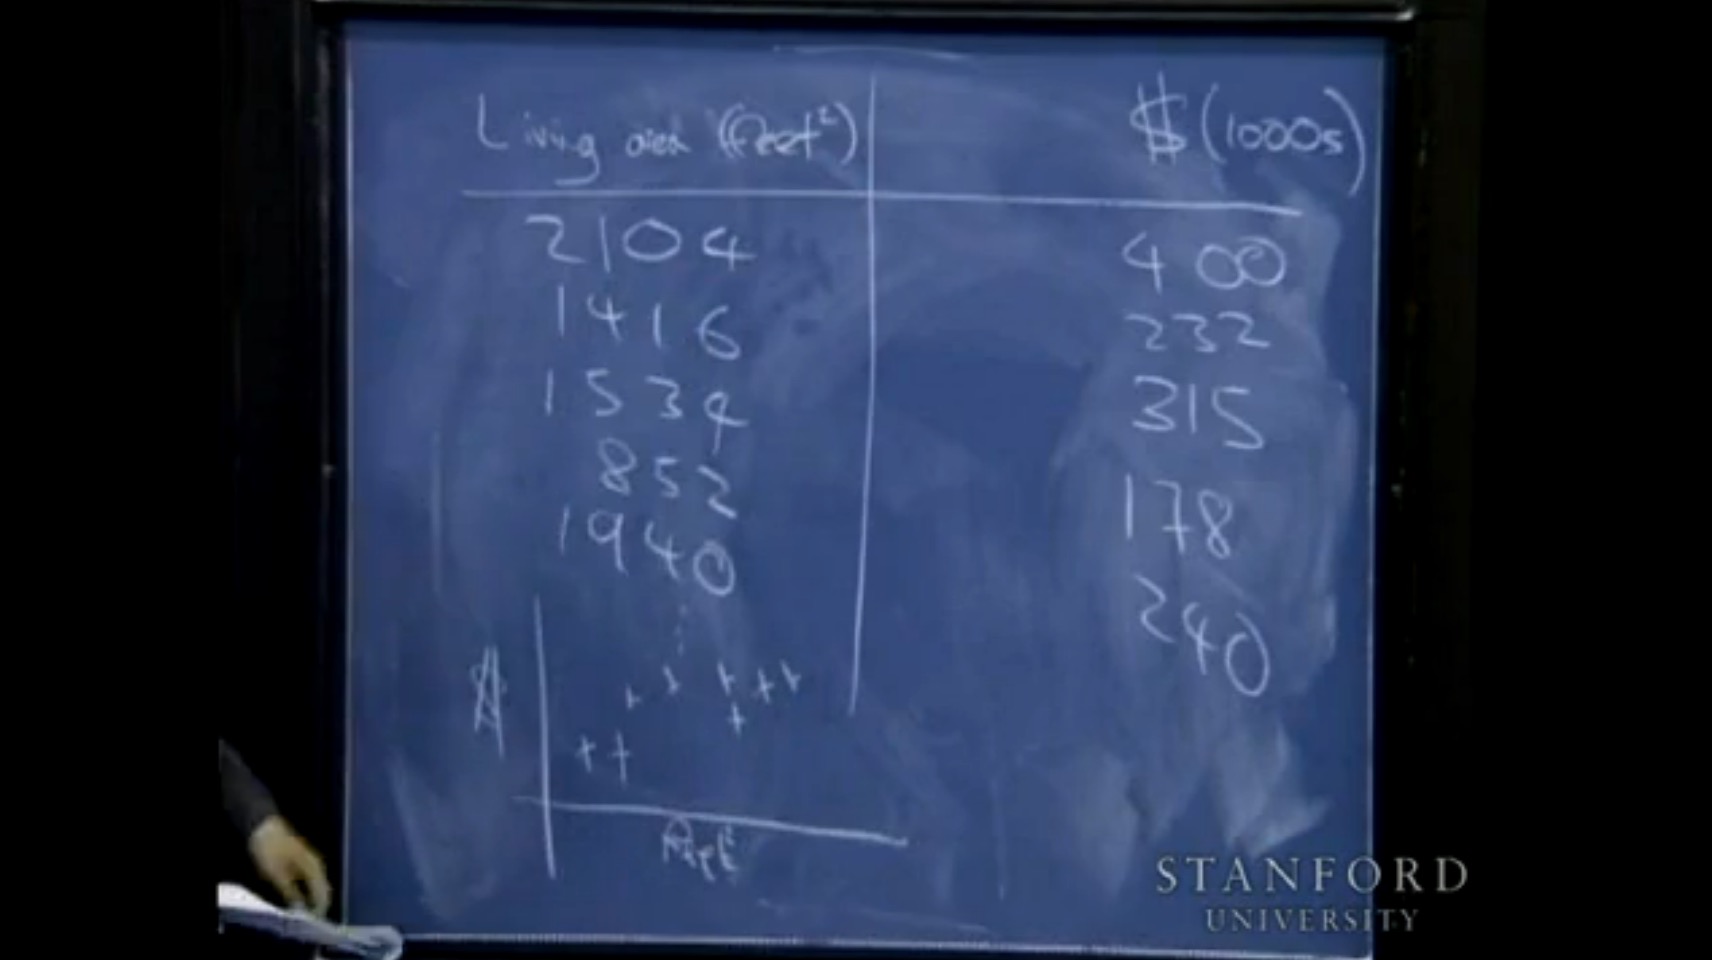 Living area (feet²) $ (1000s)
2104 400
1416 232
1534 315
852 178
1940 240
$
feet²
STANFORD
UNIVERSITY